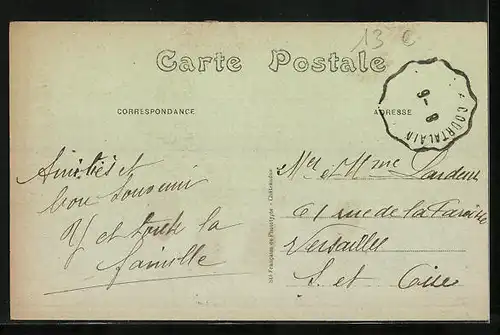 13 e
Carte Postale
CORRESPONDANCE
ADRESSE
COURTALAIN
9-8
Amitiés et
bon Souvenir
et toute la
famille
Mr et Mme
61 rue de la Paroisse
Versailles
S. et Oise
Française de Phototypie - Châteaudun